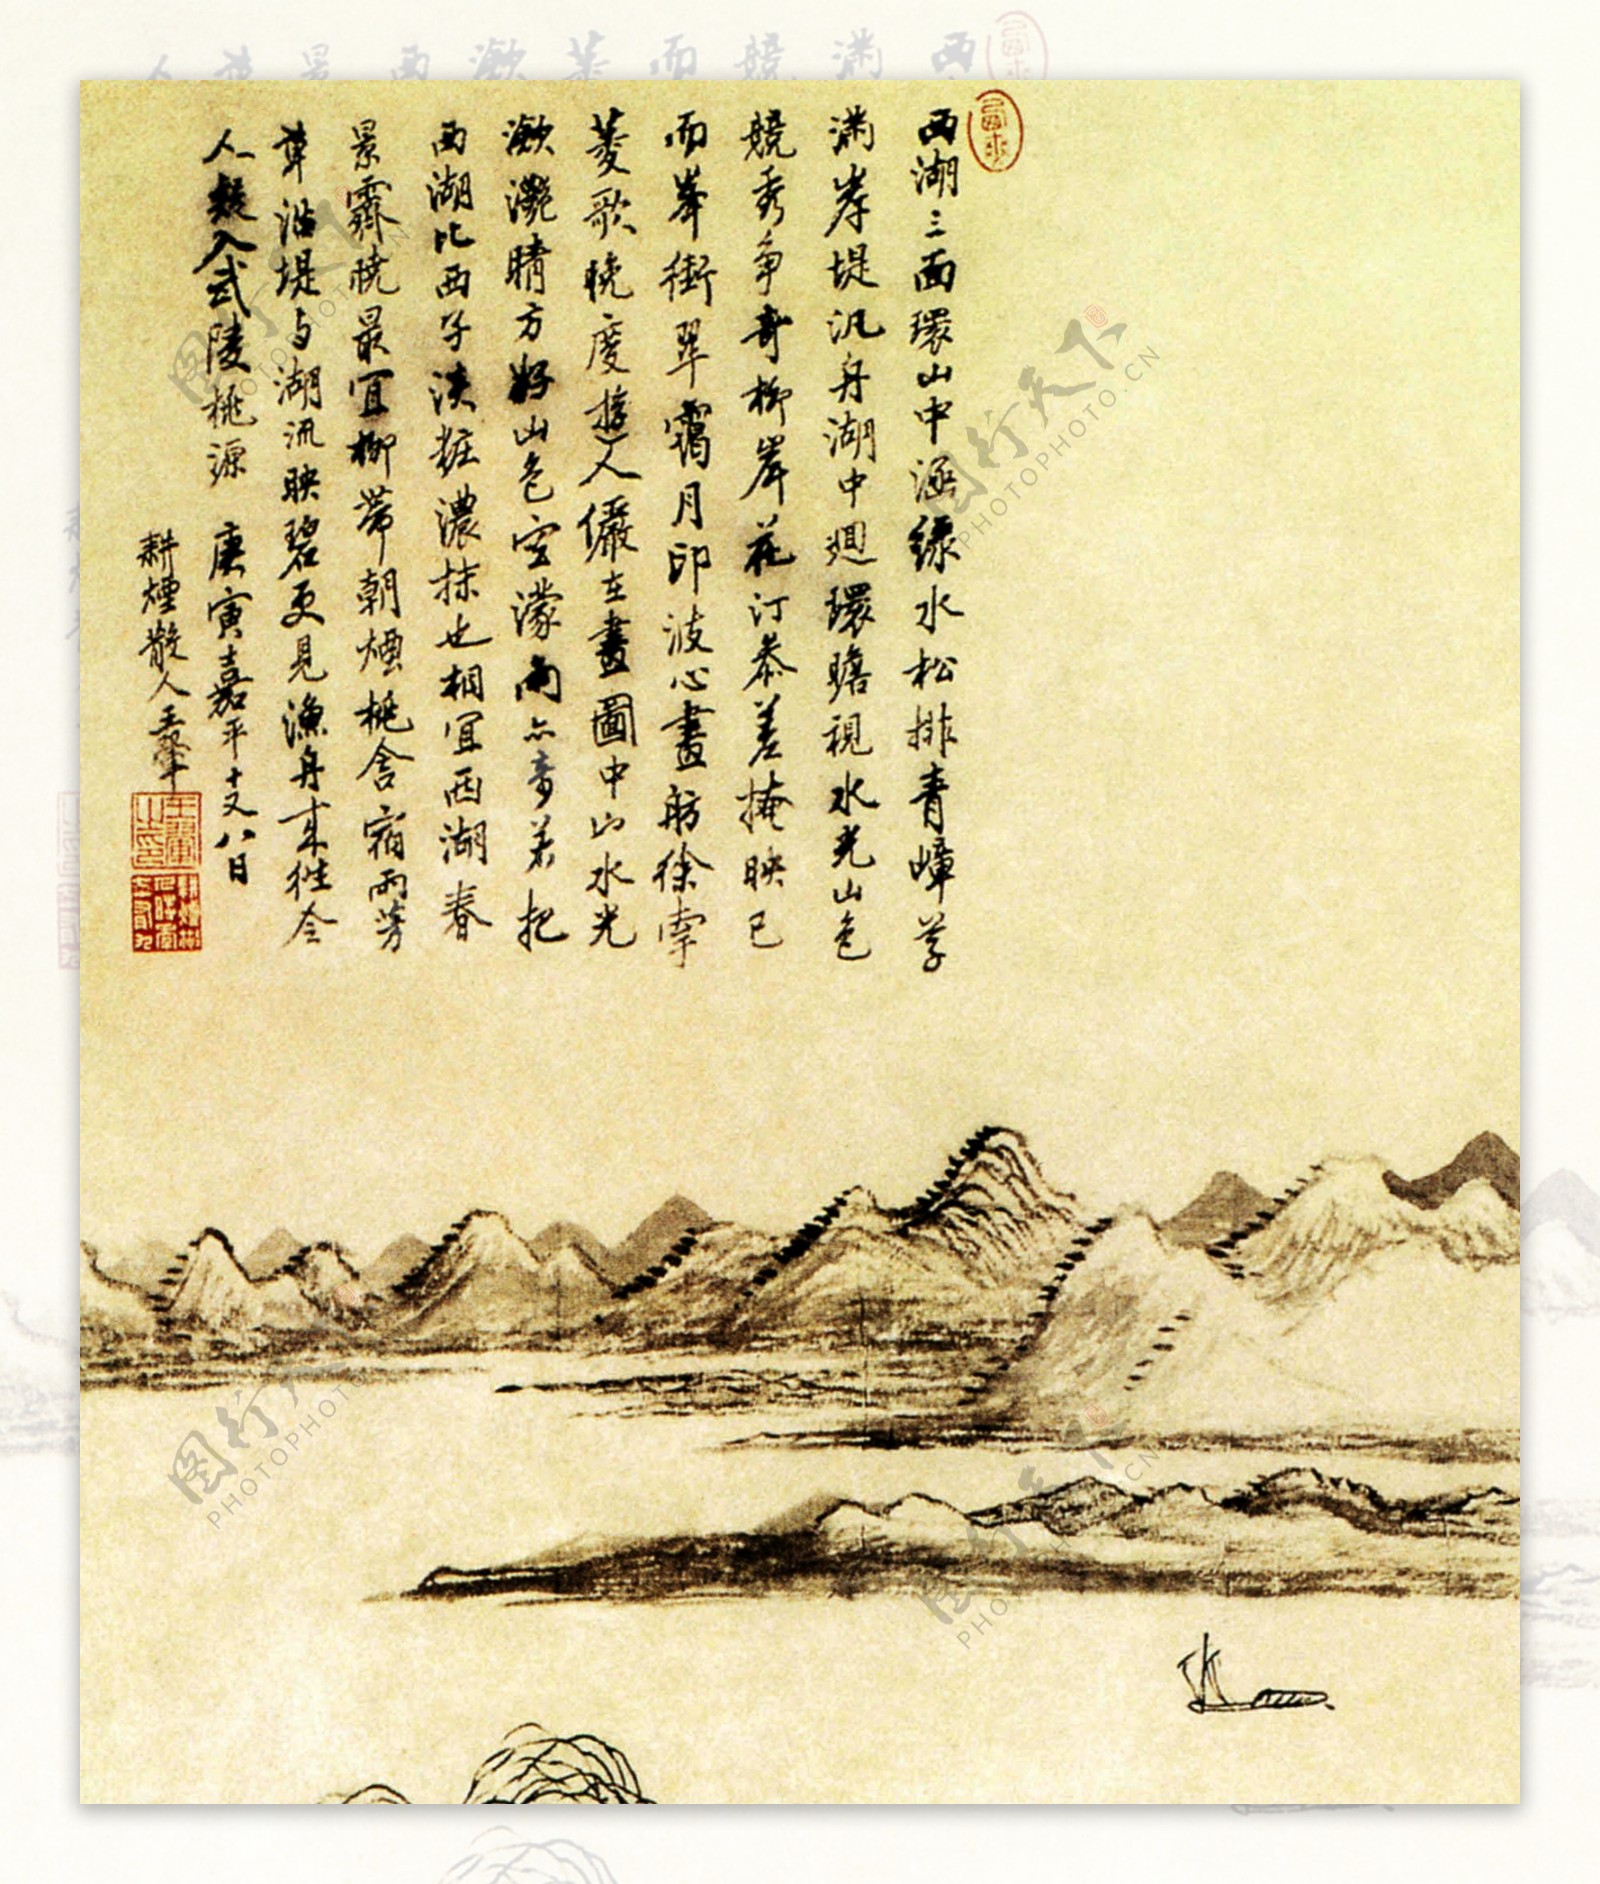 西湖三面環山中涵緑水松排青嶂草
滿岸堤汎舟湖中迴環瞻視水光山色
競秀争奇柳岸花汀叅差掩映已
而峯銜翠靄月印波心畫舫徐牽
菱歌晚度游人儼在畫圖中山水光
瀲灔晴方好山色空濛雨亦奇若把
西湖比西子淡粧濃抹也相宜西湖春
景霽曉最宜柳帶朝煙桃含宿雨芳
草沿堤与湖流映碧更見漁舟來徃令
人疑入武陵桃源 庚寅嘉平十又八日
耕煙散人王翬
图行天下 PHOTOPHOTO.CN
图行天下 PHOTOPHOTO.CN
图行天下 PHOTOPHOTO.CN
图行天下 PHOTOPHOTO.CN